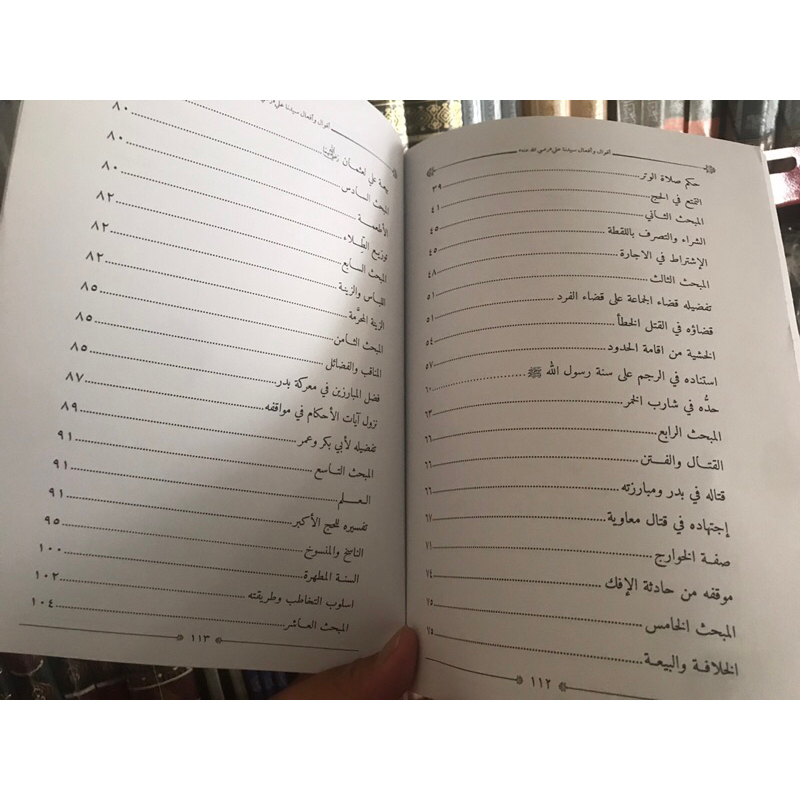 أقوال وأفعال سيدنا علي «رضي الله عنه»
حكم صلاة الوتر ................ ٣٩
التمتع في الحج ................ ٤١
المبحث الثاني ................ ٤٥
الشراء والتصرف باللقطة ................ ٤٥
الإشتراط في الاجارة ................ ٤٨
المبحث الثالث ................ ٥١
تفضيله قضاء الجماعة على قضاء الفرد ................ ٥١
قضاؤه في القتل الخطأ ................ ٥٤
الخشية من اقامة الحدود ................ ٥٧
استناده في الرجم على سنة رسول الله ﷺ ................ ٦٠
حدُّه في شارب الخمر ................ ٦٣
المبحث الرابع ................ ٦٦
القتال والفتن ................ ٦٦
قتاله في بدر ومبارزته ................ ٦٦
إجتهاده في قتال معاوية ................ ٦٧
صفة الخوارج ................ ٧١
موقفه من حادثة الإفك ................ ٧٤
المبحث الخامس ................ ٧٥
الخلافة والبيعة ................ ٧٥
١١٢
أقوال وأفعال سيدنا علي «رضي
بيعة علي لعثمان
المبحث السادس ................ ٨٠
الأطعمة ................ ٨٠
توزيع الطِّلاء ................ ٨٠
المبحث السابع ................ ٨٢
اللباس والزينة ................ ٨٢
الزينة المحرَّمة ................ ٨٢
المبحث الثامن ................ ٨٥
المناقب والفضائل ................ ٨٥
فضل المبارزين في معركة بدر ................ ٨٥
نزول آيات الأحكام في مواقفه ................ ٨٧
تفضيله لأبي بكر وعمر ................ ٨٩
المبحث التاسع ................ ٩١
العلم ................ ٩١
تفسيره للحج الأكبر ................ ٩١
الناسخ والمنسوخ ................ ٩٥
السنة المطهرة ................ ١٠٠
اسلوب التخاطب وطريقته ................ ١٠٢
المبحث العاشر ................ ١٠٤
١١٣